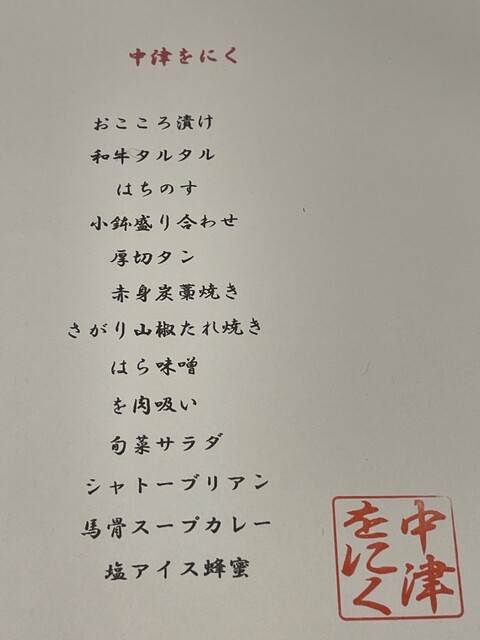 中津をにく
おこころ漬け
和牛タルタル
はちのす
小鉢盛り合わせ
厚切タン
赤身炭藁焼き
さがり山椒たれ焼き
はら味噌
を肉吸い
旬菜サラダ
シャトーブリアン
馬骨スープカレー
塩アイス蜂蜜
中津
をにく